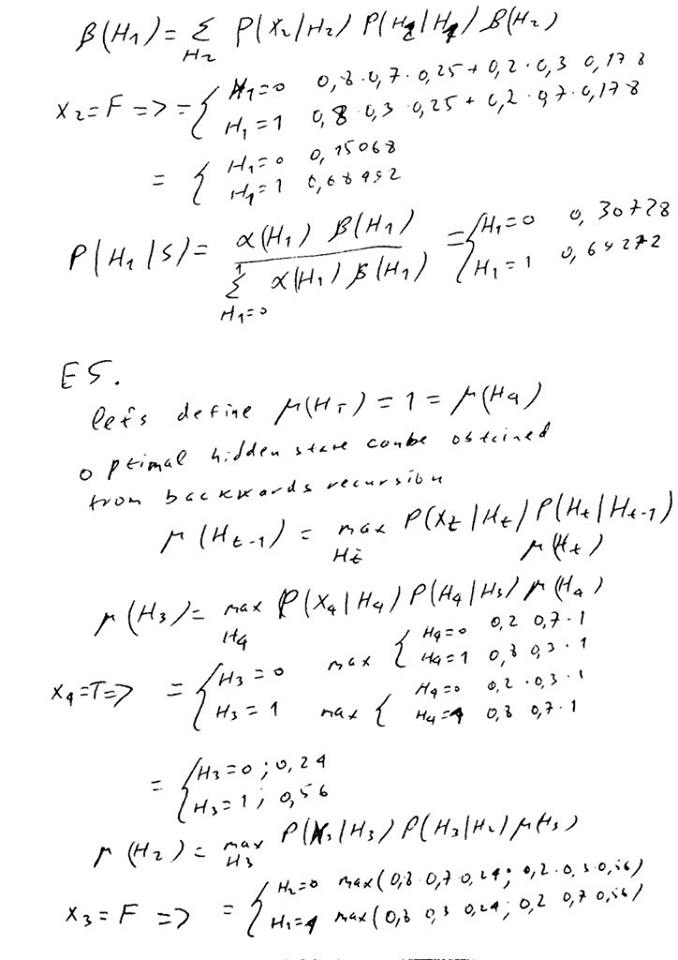 β(H₁) = Σ_H₂ P(X₂|H₂) P(H₂|H₁) β(H₂)
X₂=F => = { H₁=0 0,8·0,7·0,25 + 0,2·0,3 0,178
H₁=1 0,8 0,3 0,25 + 0,2·0,7·0,178
= { H₁=0 0,15068
H₁=1
P(H₁|S) = α(H₁) β(H₁) / Σ_{H₁=0}^1 α(H₁) β(H₁) = { H₁=0 0,30728
H₁=1 0,69272
E5.
let's define μ(H_T) = 1 = μ(H₄)
optimal hidden state can be obtained
from backwards recursion
μ(H_{t-1}) = max_{H_t} P(X_t|H_t) P(H_t|H_{t-1})
μ(H_t)
μ(H₃) = max_{H₄} P(X₄|H₄) P(H₄|H₃) μ(H₄)
X₄=T => = { H₃=0 max { H₄=0 0,2 0,7·1
H₄=1 0,8 0,3·1
H₃=1 max { H₄=0 0,2·0,3·1
H₄=1 0,8 0,7·1
= { H₃=0; 0,24
H₃=1; 0,56
μ(H₂) = max_{H₃} P(X₃|H₃) P(H₃|H₂) μ(H₃)
X₃=F => = { H₂=0 max(0,8 0,7 0,24; 0,2·0,3 0,56)
H₂=1 max(0,8 0,3 0,24; 0,2 0,7 0,56)